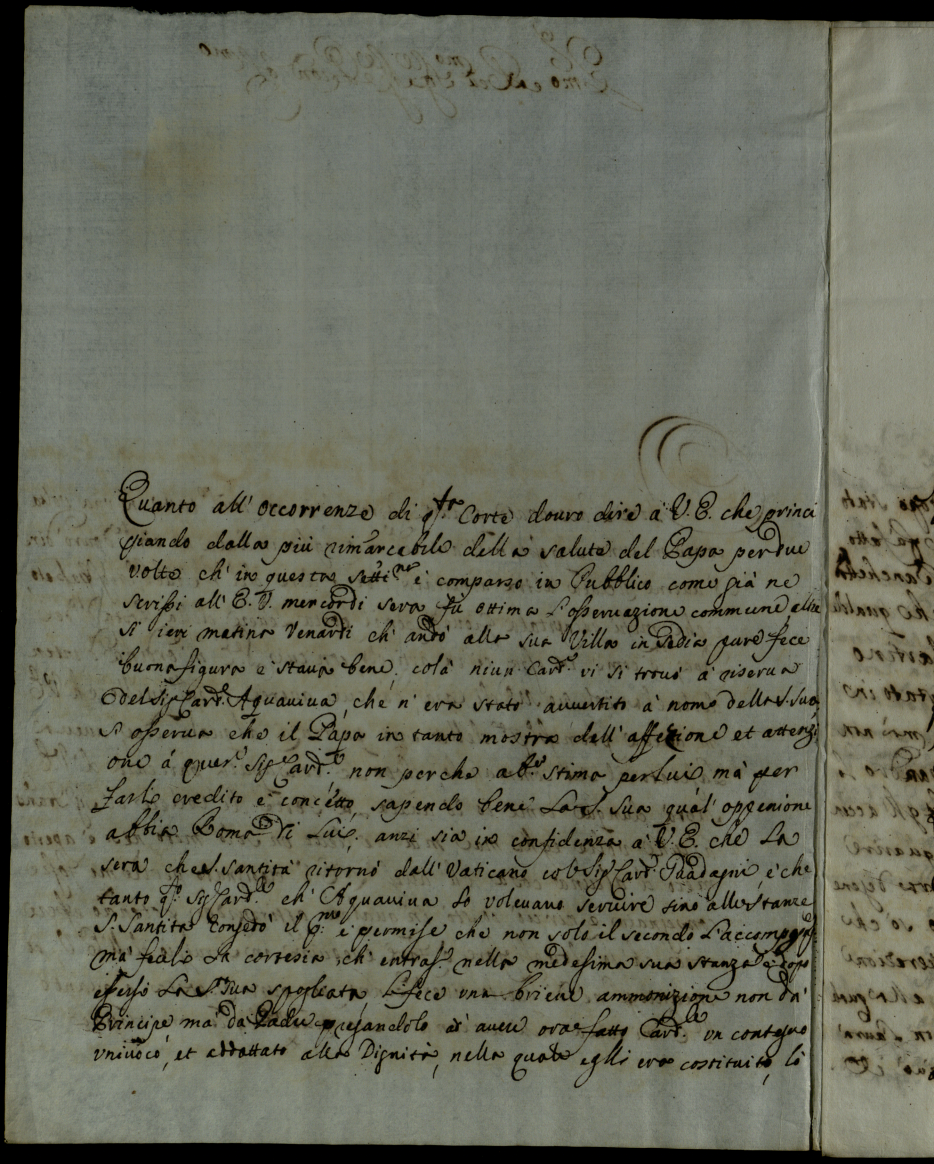 Quanto all' occorrenze di q.sta Corte douro dire à V. E. che princi
piando dalla più rimarcabile della salute del Papa per due
volte ch' in questa è comparso in Pubblico come già ne
scrissi all' E. V. mercordi sera fù ottima l'osseruazione commune
si ieri matina Venardi ch' andò alla sua Villa in Sedia pure fece
buona figura e staua bene, colà niun Card.e vi si trouò à riserua
del Sig.r Card.e Aquauiua, che n' era stato auuertito à nome della S. Sua,
S' osserua che il Papa in tanto mostra dell' affezione et attenzi
one à quer.o Sig.r Card.e non perche abb.a stima per lui, mà per
farle credito e concetto, sapendo bene La S. Sua qual' oppenione
abbia Roma di Lui, anzi sia in confidenza à V. E. che La
sera che S. Santità ritornò dall' Vaticano col Sig.r Card.e Guadagni, e che
tanto q.o Sig.r Card.e ch' Aquauiua lo voleuano seruire sino alle stanze
S. Santità il p.mo e permise che non solo il secondo
mà fecele la cortesia, ch' entras.e nella medesima sua stanza e
essersi La S. Sua spogliata Li fece una breue ammonizione non da
Principe ma da Padre pregandolo ad auere ora fatto Card.e un contegno
uniuoco, et addattato alla Dignità, nella quale egli era costituito, lò